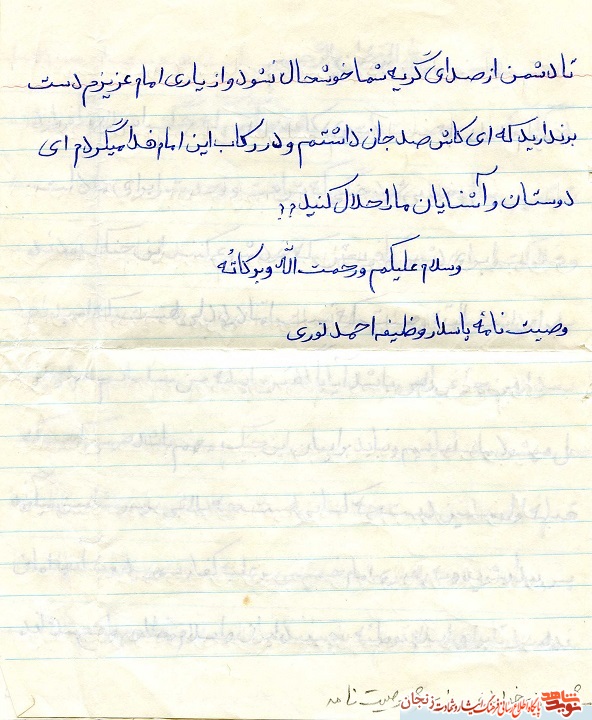 تا دشمن از صدای گریه شما خوشحال نشود و از یاری امام عزیزم دست
برندارید که ای کاش صد جان داشتم و در رکاب این امام فدا میکردم ای
دوستان و آشنایان ما را حلال کنید؟؟
وسلام علیکم ورحمت الله وبرکاتُه
وصیت نامۀ پاسدار وظیفه احمد نوری
وصیت نامه
نوید شاهد پایگاه اطلاع رسانی فرهنگ ایثار و شهادت زنجان